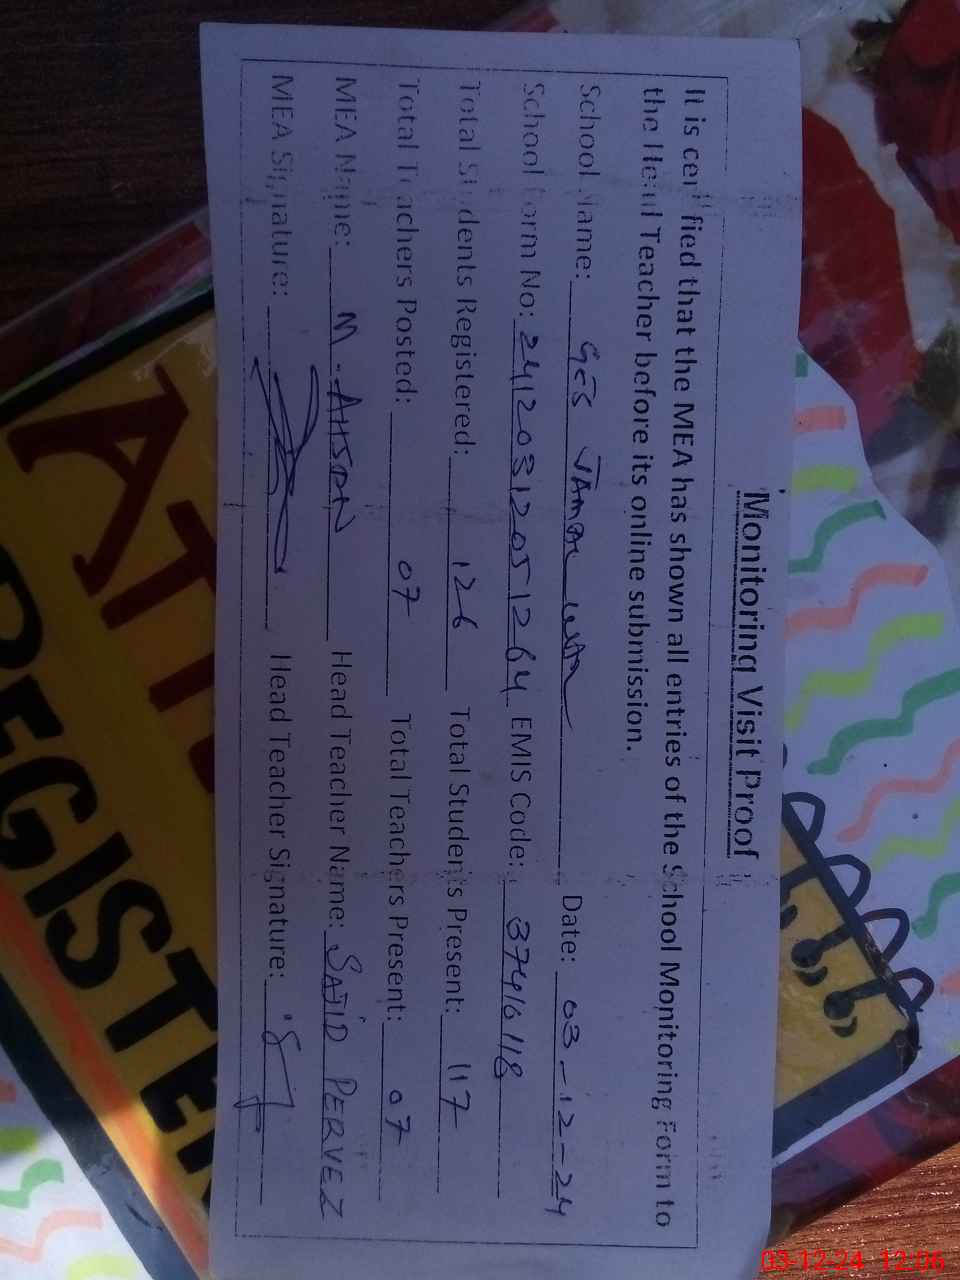 Monitoring Visit Proof
It is certified that the MEA has shown all entries of the School Monitoring Form to
the Head Teacher before its online submission.
School Name: GES JAMAL Date: 03-12-24
School Form No: 24120312051264 EMIS Code: 37410118
Total Students Registered: 126 Total Students Present: 117
Total Teachers Posted: 07 Total Teachers Present: 07
MEA Name: M. AHSAN Head Teacher Name: SAJID PERVEZ
MEA Signature: Head Teacher Signature:
03-12-24 12:06